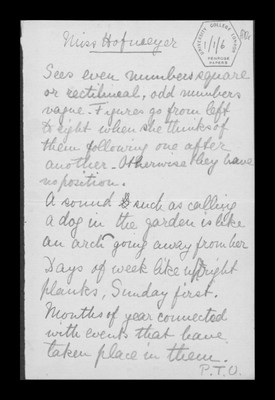 Miss Hofmeyer
UNIVERSITY COLLEGE LONDON
1/1/6
PENROSE PAPERS
Sees even numbers square
or rectilineal, odd numbers
vague. Figures go from left
to right when she thinks of
them following one after
another. Otherwise they have
no position.
A sound such as calling
a dog in the garden is like
an arch going away from her
Days of week like upright
planks, Sunday first.
Months of year connected
with events that have
taken place in them.
P.T.O.